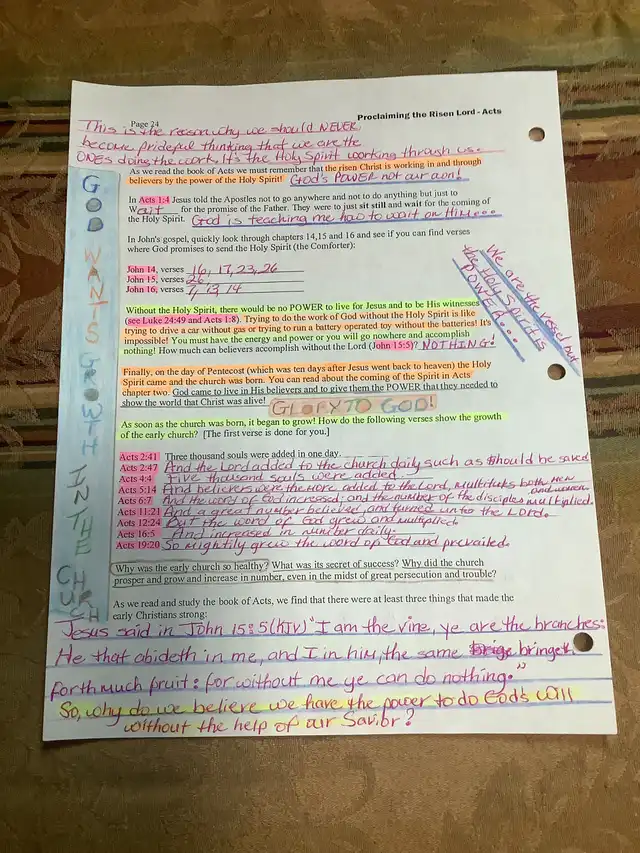 Page 24
Proclaiming the Risen Lord - Acts
This is the reason why we should NEVER
become prideful thinking that we are the
ONES doing the work. It's the Holy Spirit working through us.
As we read the book of Acts we must remember that the risen Christ is working in and through
believers by the power of the Holy Spirit! God's POWER not our aon!
In Acts 1:4 Jesus told the Apostles not to go anywhere and not to do anything but just to
Wait for the promise of the Father. They were to just sit still and wait for the coming of
the Holy Spirit. God is teaching me how to wait on Him...
In John's gospel, quickly look through chapters 14,15 and 16 and see if you can find verses
where God promises to send the Holy Spirit (the Comforter):
John 14, verses 16, 17, 23, 26
John 15, verses 26
John 16, verses 7, 13, 14
We are the vessel but
the Holy Spirit's
POWER...
Without the Holy Spirit, there would be no POWER to live for Jesus and to be His witnesses
(see Luke 24:49 and Acts 1:8). Trying to do the work of God without the Holy Spirit is like
trying to drive a car without gas or trying to run a battery operated toy without the batteries! It's
impossible! You must have the energy and power or you will go nowhere and accomplish
nothing! How much can believers accomplish without the Lord (John 15:5)? NOTHING!
Finally, on the day of Pentecost (which was ten days after Jesus went back to heaven) the Holy
Spirit came and the church was born. You can read about the coming of the Spirit in Acts
chapter two. God came to live in His believers and to give them the POWER that they needed to
show the world that Christ was alive! GLORY TO GOD!
As soon as the church was born, it began to grow! How do the following verses show the growth
of the early church? [The first verse is done for you.]
Acts 2:41 Three thousand souls were added in one day.
Acts 2:47 And the Lord added to the church daily such as should be saved
Acts 4:4 Five thousand souls were added.
Acts 5:14 And believers were the more added to the Lord, multituts both MEN and women
Acts 6:7 And the word of God increased; and the number of the disciples multiplied.
Acts 11:21 And a great number believed, and turned unto the LORD.
Acts 12:24 But the word of God grew and multiplied.
Acts 16:5 And increased in number daily.
Acts 19:20 So mightily grew the word of God and prevailed.
Why was the early church so healthy? What was its secret of success? Why did the church
prosper and grow and increase in number, even in the midst of great persecution and trouble?
As we read and study the book of Acts, we find that there were at least three things that made the
early Christians strong:
Jesus said in John 15:5 (KJV) "I am the vine, ye are the branches:
He that abideth in me, and I in him, the same bringeth
forth much fruit: for without me ye can do nothing."
So, why do we believe we have the power to do God's will
without the help of our Savior?
GOD WANTS GROWTH IN THE CHURCH